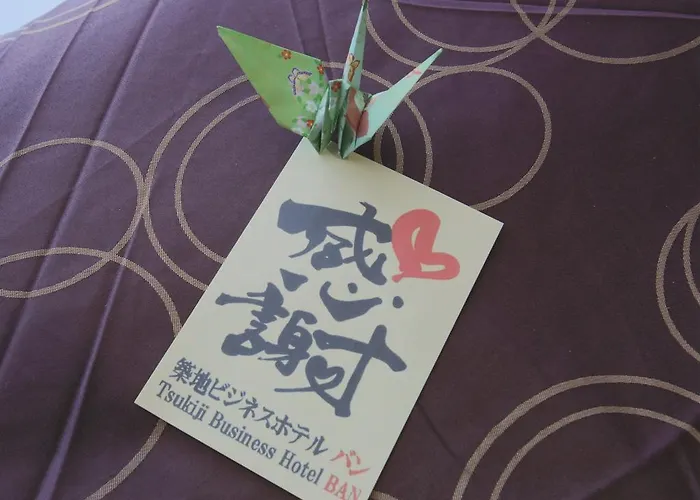 感謝
築地ビジネスホテル バン
Tsukiji Business Hotel BAN